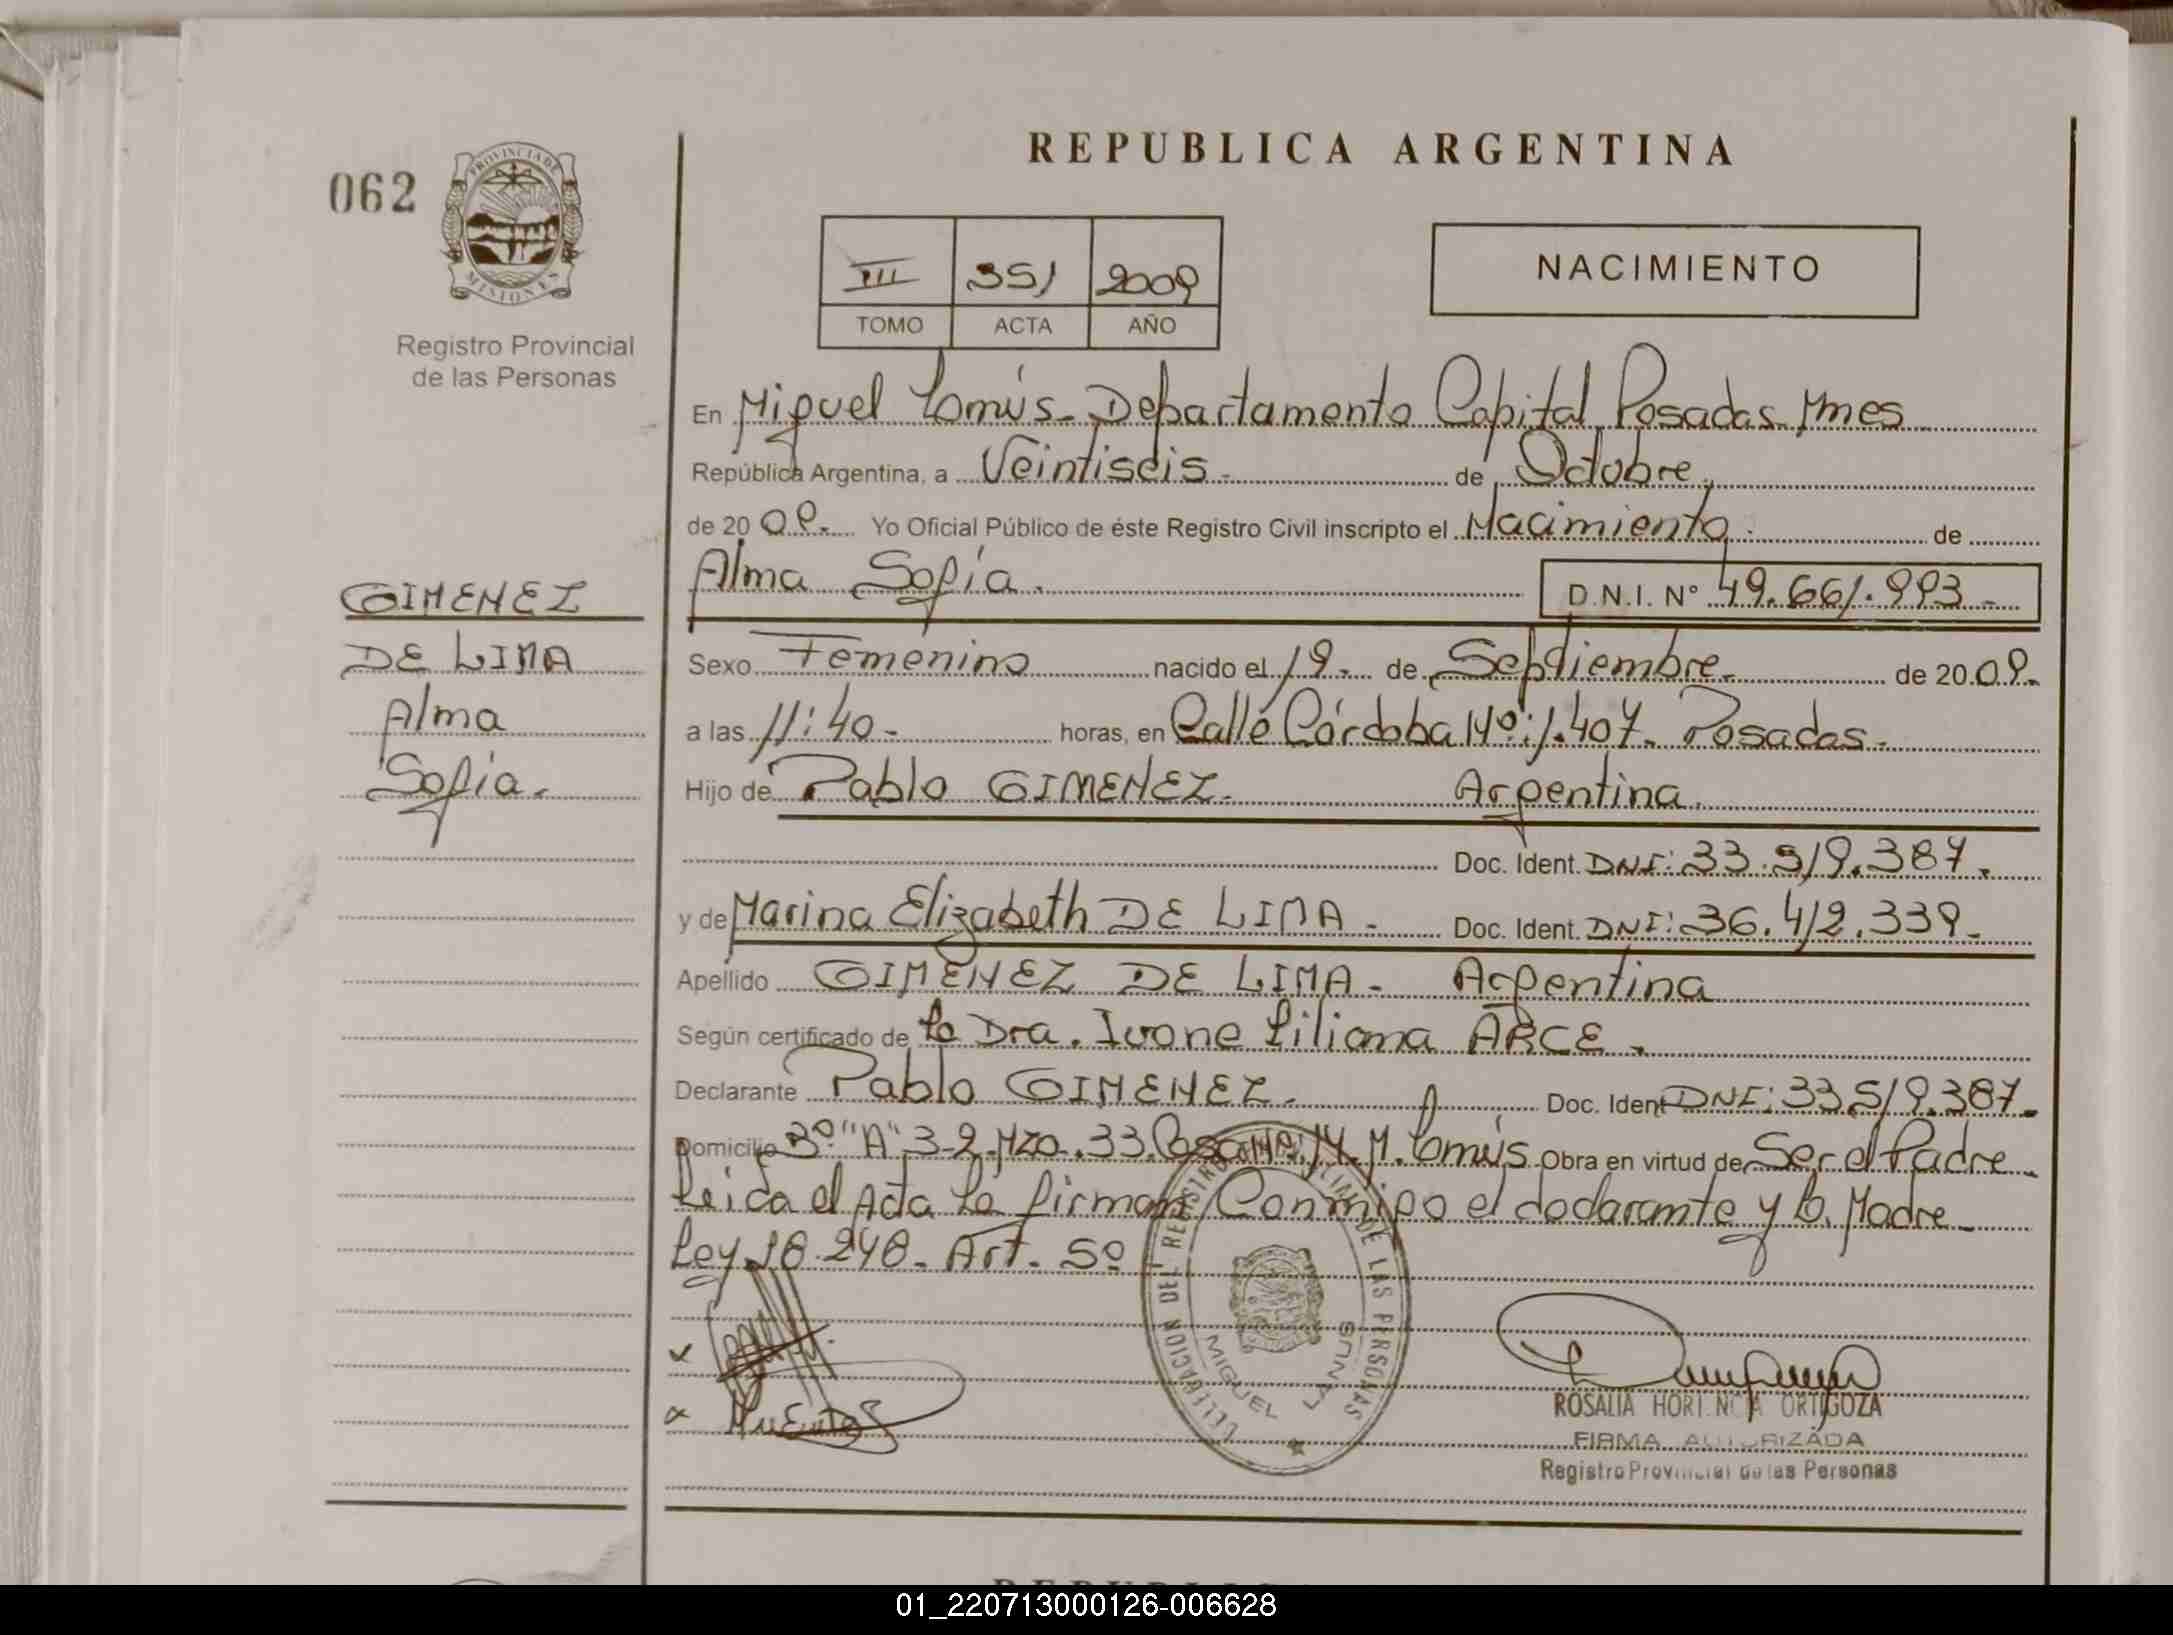 REPUBLICA ARGENTINA
062
PROVINCIA DE MISIONES
Registro Provincial
de las Personas
III 351 2009
TOMO ACTA AÑO
NACIMIENTO
En Miguel Lanús - Departamento Capital Posadas Mnes
República Argentina, a Veintiseis - de Octubre
de 20 09. Yo Oficial Público de éste Registro Civil inscripto el Nacimiento de
Alma Sofía. D.N.I. N° 49.661.993 -
GIMENEZ
DE LIMA
Alma
Sofía.
Sexo Femenino nacido el 19. de Septiembre de 20 09.
a las 11:40 - horas, en Calle Córdoba Nº: 1.407. Posadas -
Hijo de Pablo GIMENEZ. Argentina.
Doc. Ident. DNI: 33.519.387.
y de Marina Elizabeth DE LIMA - Doc. Ident. DNI: 36.412.339 -
Apellido GIMENEZ DE LIMA - Argentina
Según certificado de la Dra. Ivone Liliana ARCE.
Declarante Pablo GIMENEZ. Doc. Ident DNI: 33.519.387.
Domicilio 3º "A" 3-2 Mza. 33. Casa Nº: 14. M. Lanús. Obra en virtud de Ser el Padre.
Leida el Acta la firman Conmigo el declarante y la Madre -
Ley 18.248 - Art. 5º
DELEGACION DEL REGISTRO DE LAS PERSONAS
MIGUEL LANUS
ROSALIA HORTENCIA ORTIGOZA
FIRMA AUTORIZADA
Registro Provincial de las Personas
01_220713000126-006628